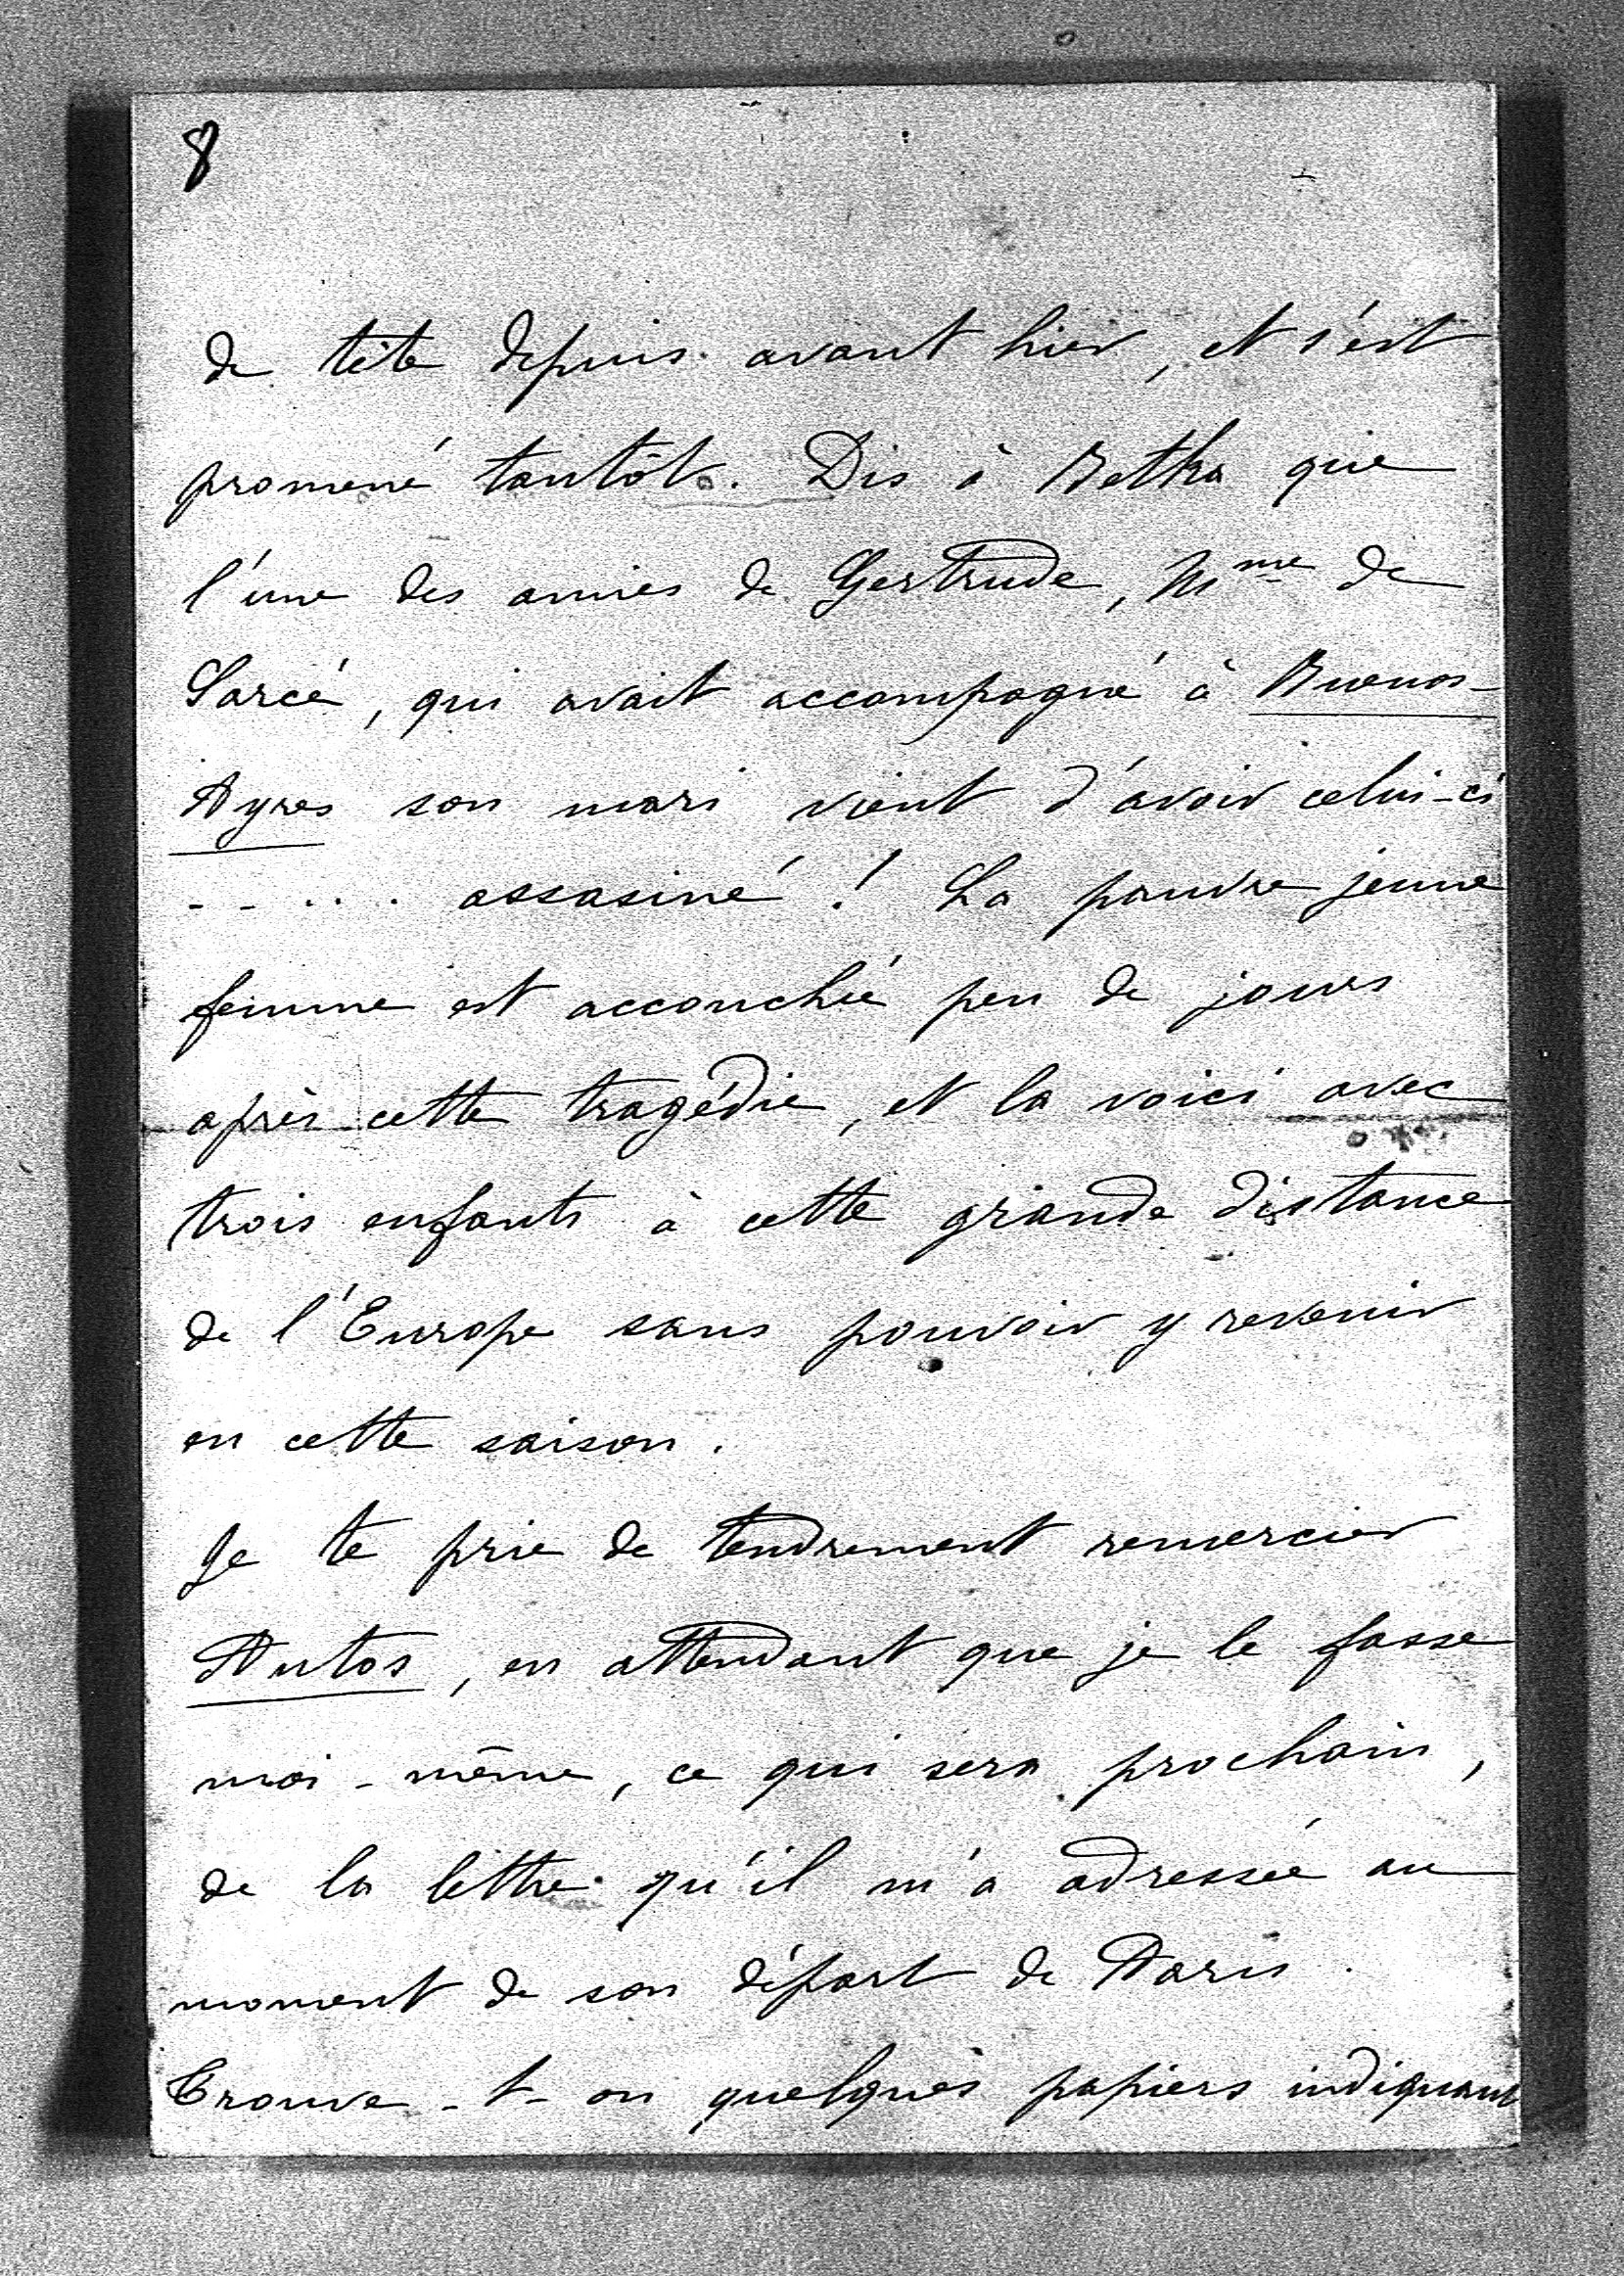 8
de tête depuis avant hier, et s'est
promené tantôt. Dis à Betka que
l'une des amies de Gertrude, Mme de
Sarcé, qui avait accompagné à Buenos-
Ayres son mari vient d'avoir celui-ci
- - . . . assasiné ! La pauvre jeune
femme est accouchée peu de jours
après cette tragédie, et la voici avec
trois enfants à cette grande distance
de l'Europe sans pouvoir y revenir
en cette saison.
Je te prie de tendrement remercier
Autos, en attendant que je le fasse
moi-même, ce qui sera prochain,
de la lettre qu'il m'a adressée au
moment de son départ de Paris.
Trouve-t-on quelques papiers indiquant